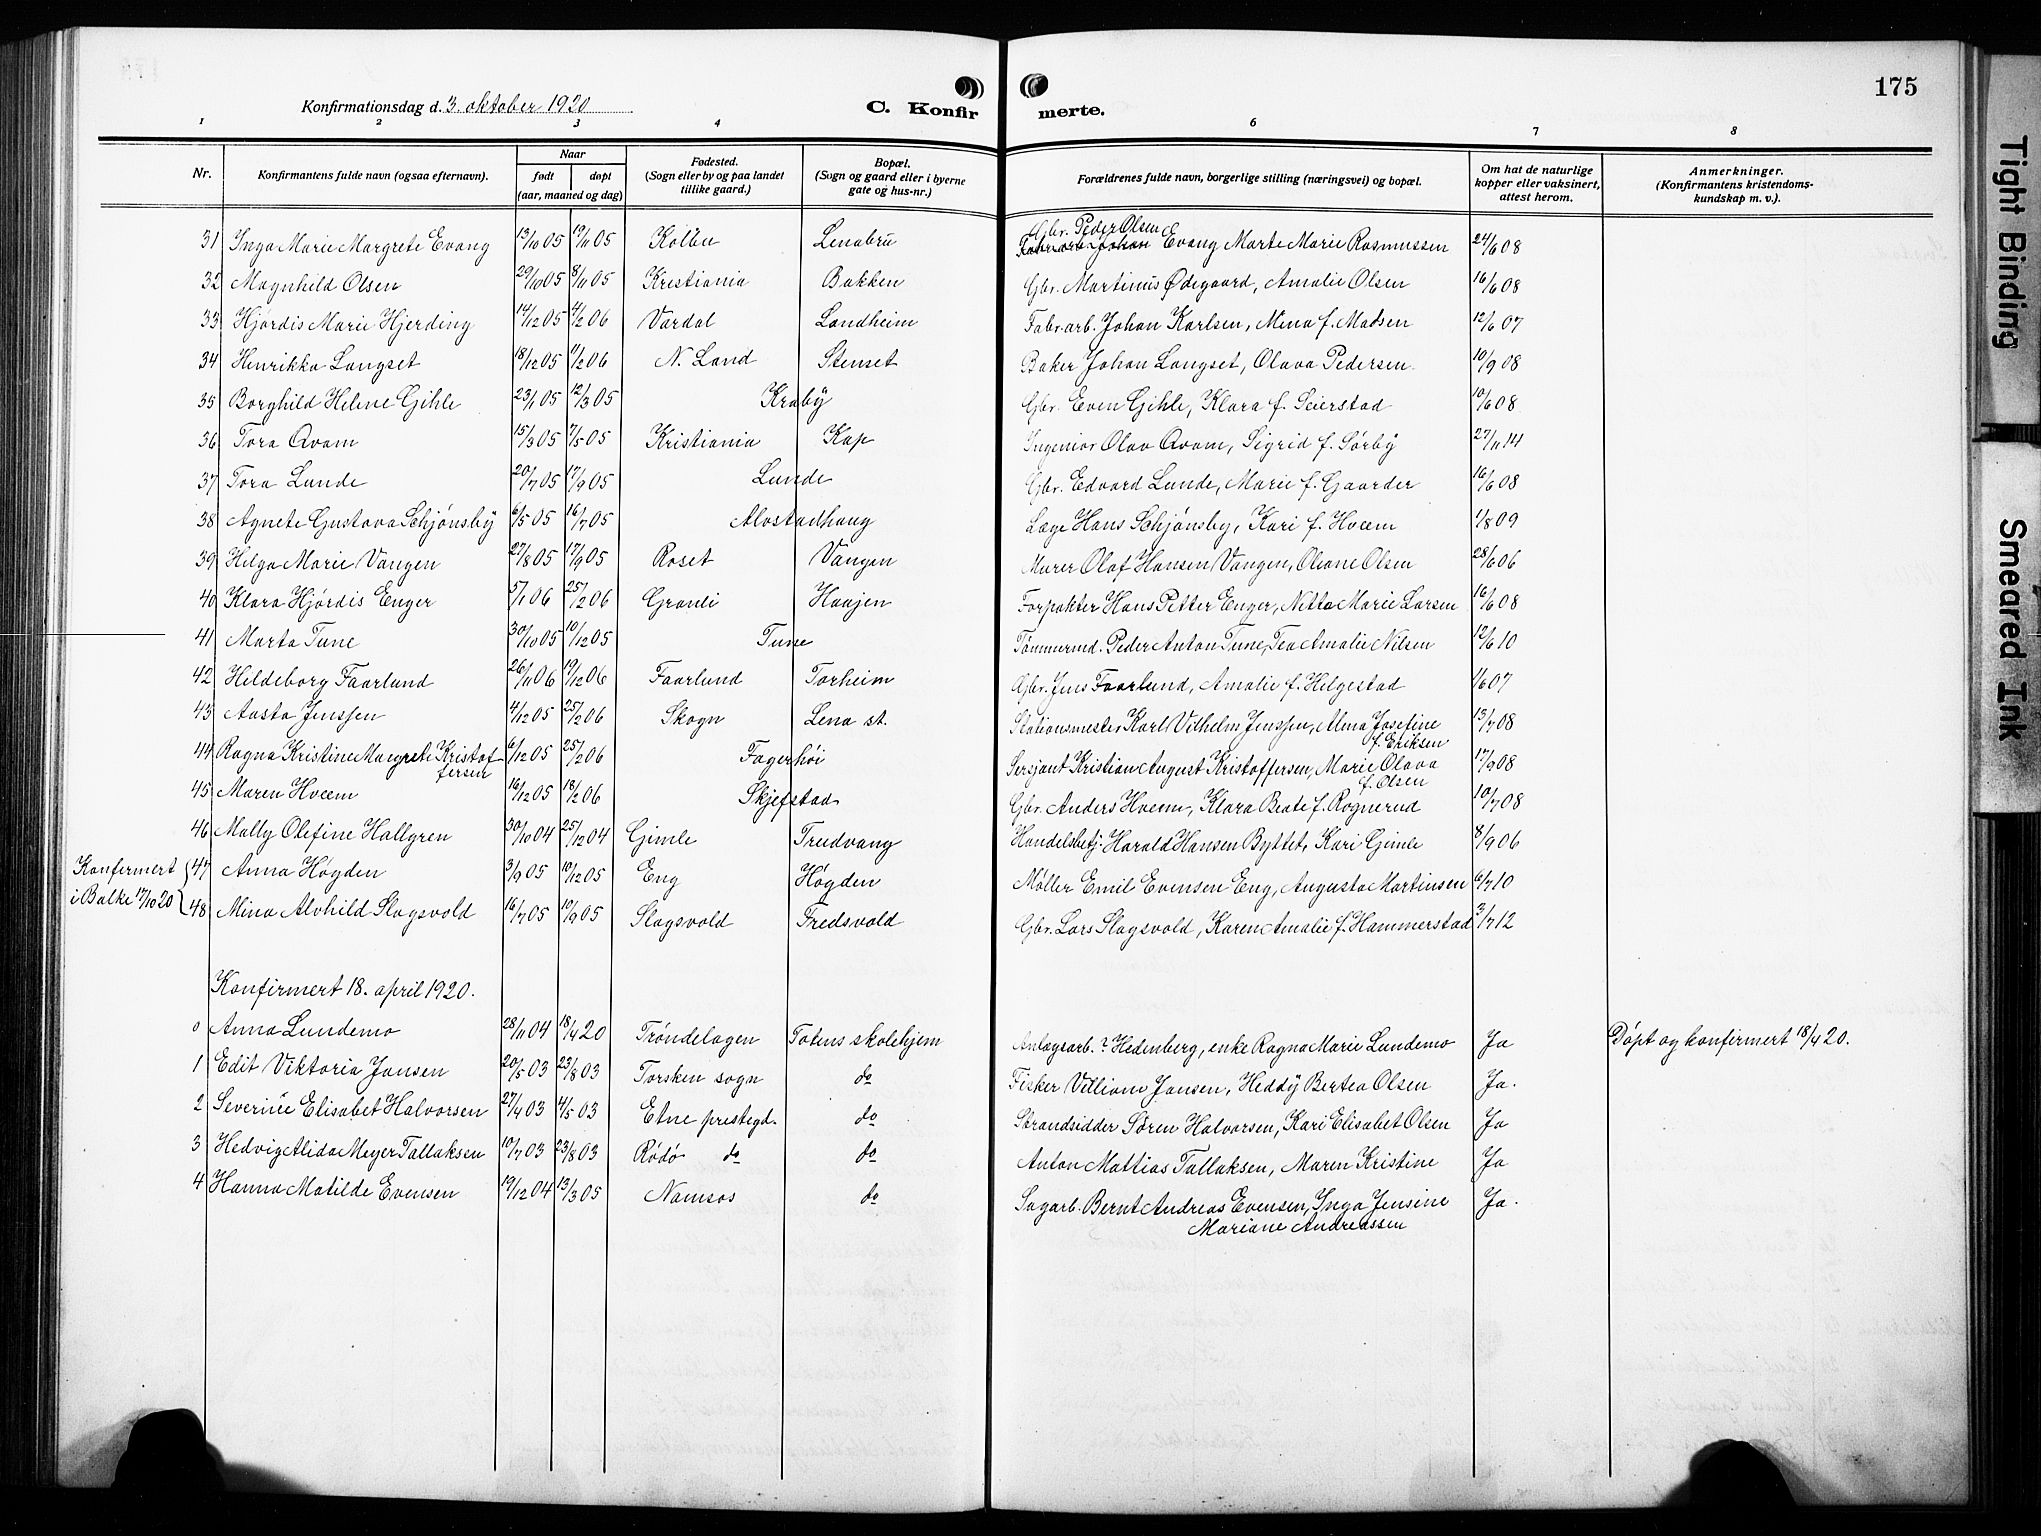 175
Konfirmationsdag d. 3. oktober 1920
C. Konfirmerte.
1 2 3 4 5 6 7 8
Nr. Konfirmantens fulde navn (ogsaa efternavn). Naar født døpt (aar, maaned og dag) Fødested. (Sogn eller by og paa landet tillike gaard.) Bopæl. (Sogn og gaard eller i byerne gate og hus-nr.) Forældrenes fulde navn, borgerlige stilling (næringsvei) og bopæl. Om hat de naturlige kopper eller vaksinert, attest herom. Anmerkninger. (Konfirmantens kristendomskundskap m. v.).
31 Inga Marie Margrete Evang 13/10 05 19/11 05 Kolbu Lenabru Gbr. Peder Olsen Evang Marte Marie Rasmussen 24/6 08
32 Magnhild Olsen 29/10 05 8/11 05 Kristiania Bakken Gbr. Martinus Ødegaard, Amalie Olsen 16/6 08
33 Hjørdis Marie Hjerding 14/12 05 4/2 06 Vardal Landheim Fabr.arb. Johan Karlsen, Mina f. Madsen 12/6 07
34 Henrikka Langset 18/12 05 11/2 06 N. Land Stenset Baker Johan Langset, Olava Pedersen 10/9 08
35 Borghild Helene Gihle 23/1 05 12/3 05 Kraby Gbr. Even Gihle, Klara f. Seierstad 10/6 08
36 Tora Qvam 15/3 05 7/5 05 Kristiania Kap Ingeniør Olav Qvam, Sigrid f. Sørby 27/11 14
37 Tora Lunde 20/7 05 17/9 05 Lunde Gbr. Edvard Lunde, Marie f. Gaarder 16/6 08
38 Agnete Gustava Schjønsby 6/5 05 16/7 05 Alvstadhaug Læge Hans Schjønsby, Kari f. Hveem 1/8 09
39 Helga Marie Vangen 27/8 05 17/9 05 Roset Vangen Murer Olaf Hansen Vangen, Oliane Olsen 28/6 06
40 Klara Hjørdis Enger 5/1 06 25/2 06 Granli Haajen Forpakter Hans Petter Enger, Netta Marie Larsen 16/6 08
41 Marta Tune 30/10 05 10/12 05 Tune Tømmermd. Peder Anton Tune, Tea Amalie Nilsen 12/6 10
42 Hildeborg Faarlund 26/11 06 19/12 06 Faarlund Torheim Gbr. Jens Faarlund, Amalie f. Helgestad 1/6 07
43 Aasta Jenssen 4/12 05 25/2 06 Skogn Lena st. Stationsmester Karl Vilhelm Jenssen, Alma Josefine f. Eriksen 13/7 08
44 Ragna Kristine Margrete Kristoffersen 6/12 05 25/2 06 Fagerhøi Sersjant Kristian August Kristoffersen, Marie Olava f. Olsen 17/9 08
45 Maren Hveem 16/12 05 18/2 06 Skjefstad Gbr. Anders Hveem, Klara Beate f. Rognerud 10/7 08
46 Mally Olefine Hallgren 30/10 04 25/12 04 Gimle Tredvang Handelsbetj. Harald Hansen Byttet, Kari Gimle 8/9 06
Konfirmert i Balke 17/10 20
47 Anna Høgden 3/9 05 10/12 05 Eng Høgden Møller Emil Evensen Eng, Augusta Martinsen 6/7 10
48 Mina Alvhild Slagsvold 16/7 05 10/9 05 Slagsvold Fredsvold Gbr. Lars Slagsvold, Karen Amalie f. Hammerstad 3/7 12
Konfirmert 18. april 1920.
0 Anna Lundemo 28/11 04 18/4 20 Trøndelagen Totens skolehjem Anlægsarb. ? Hedenberg, enke Ragna Marie Lundemo Ja Døpt og konfirmert 18/4 20.
1 Edit Viktoria Jansen 20/5 03 23/8 03 Torsken sogn do Fisker Villiam Jansen, Heddy Bertea Olsen Ja.
2 Severine Elisabet Halvorsen 27/4 03 4/5 03 Etne prestegd. do Strandsidder Søren Halvorsen, Kari Elisabet Olsen Ja
3 Hedvig Alida Meyer Tallaksen 10/7 03 23/8 03 Rødø do do Anton Mattias Tallaksen, Maren Kristine Ja
4 Hanna Matilde Evensen 19/12 04 13/3 05 Namsos do Sagarb. Bernt Andreas Evensen, Inga Jensine Mariane Andreassen Ja.
Tight Binding
Smeared Ink